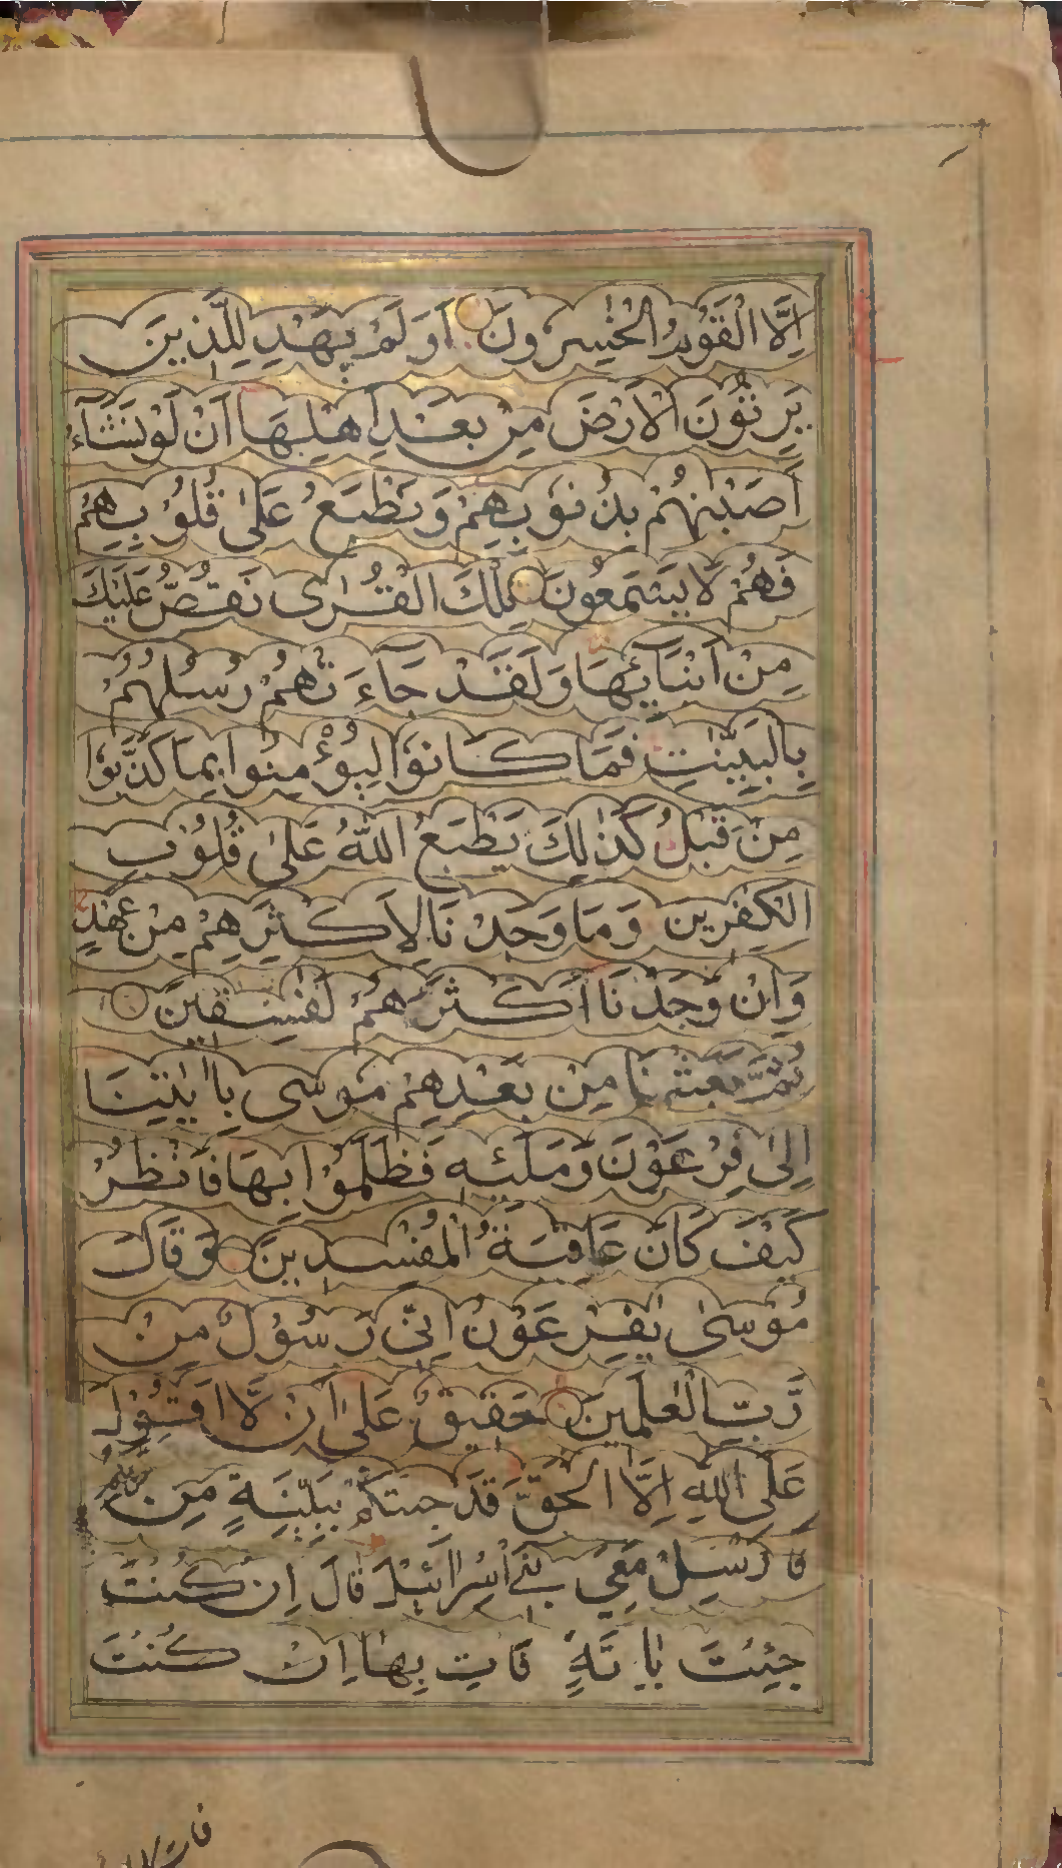 اِلَّا الْقَوْمُ الْخٰسِرُونَ اَوَلَمْ يَهْدِ لِلَّذِينَ
يَرِثُونَ الْاَرْضَ مِنْ بَعْدِ اَهْلِهَا اَنْ لَوْ نَشَآءُ
اَصَبْنٰهُمْ بِذُنُوبِهِمْ وَنَطْبَعُ عَلٰى قُلُوبِهِمْ
فَهُمْ لَا يَسْمَعُونَ تِلْكَ الْقُرٰى نَقُصُّ عَلَيْكَ
مِنْ اَنْبَآئِهَا وَلَقَدْ جَآءَتْهُمْ رُسُلُهُمْ
بِالْبَيِّنٰتِ فَمَا كَانُوا لِيُؤْمِنُوا بِمَا كَذَّبُوا
مِنْ قَبْلُ كَذٰلِكَ يَطْبَعُ اللّٰهُ عَلٰى قُلُوبِ
الْكٰفِرِينَ وَمَا وَجَدْنَا لِاَكْثَرِهِمْ مِنْ عَهْدٍ
وَاِنْ وَجَدْنَا اَكْثَرَهُمْ لَفٰسِقِينَ
ثُمَّ بَعَثْنَا مِنْ بَعْدِهِمْ مُوسٰى بِاٰيٰتِنَا
اِلٰى فِرْعَوْنَ وَمَلَئِهٖ فَظَلَمُوا بِهَا فَانْظُرْ
كَيْفَ كَانَ عَاقِبَةُ الْمُفْسِدِينَ وَقَالَ
مُوسٰى يٰفِرْعَوْنُ اِنِّى رَسُولٌ مِنْ
رَبِّ الْعٰلَمِينَ حَقِيقٌ عَلٰى اَنْ لَّا اَقُولَ
عَلَى اللّٰهِ اِلَّا الْحَقَّ قَدْ جِئْتُكُمْ بِبَيِّنَةٍ مِنْ رَبِّكُمْ
فَاَرْسِلْ مَعِيَ بَنِي اِسْرَآئِيلَ قَالَ اِنْ كُنْتَ
جِئْتَ بِاٰيَةٍ فَاْتِ بِهَا اِنْ كُنْتَ